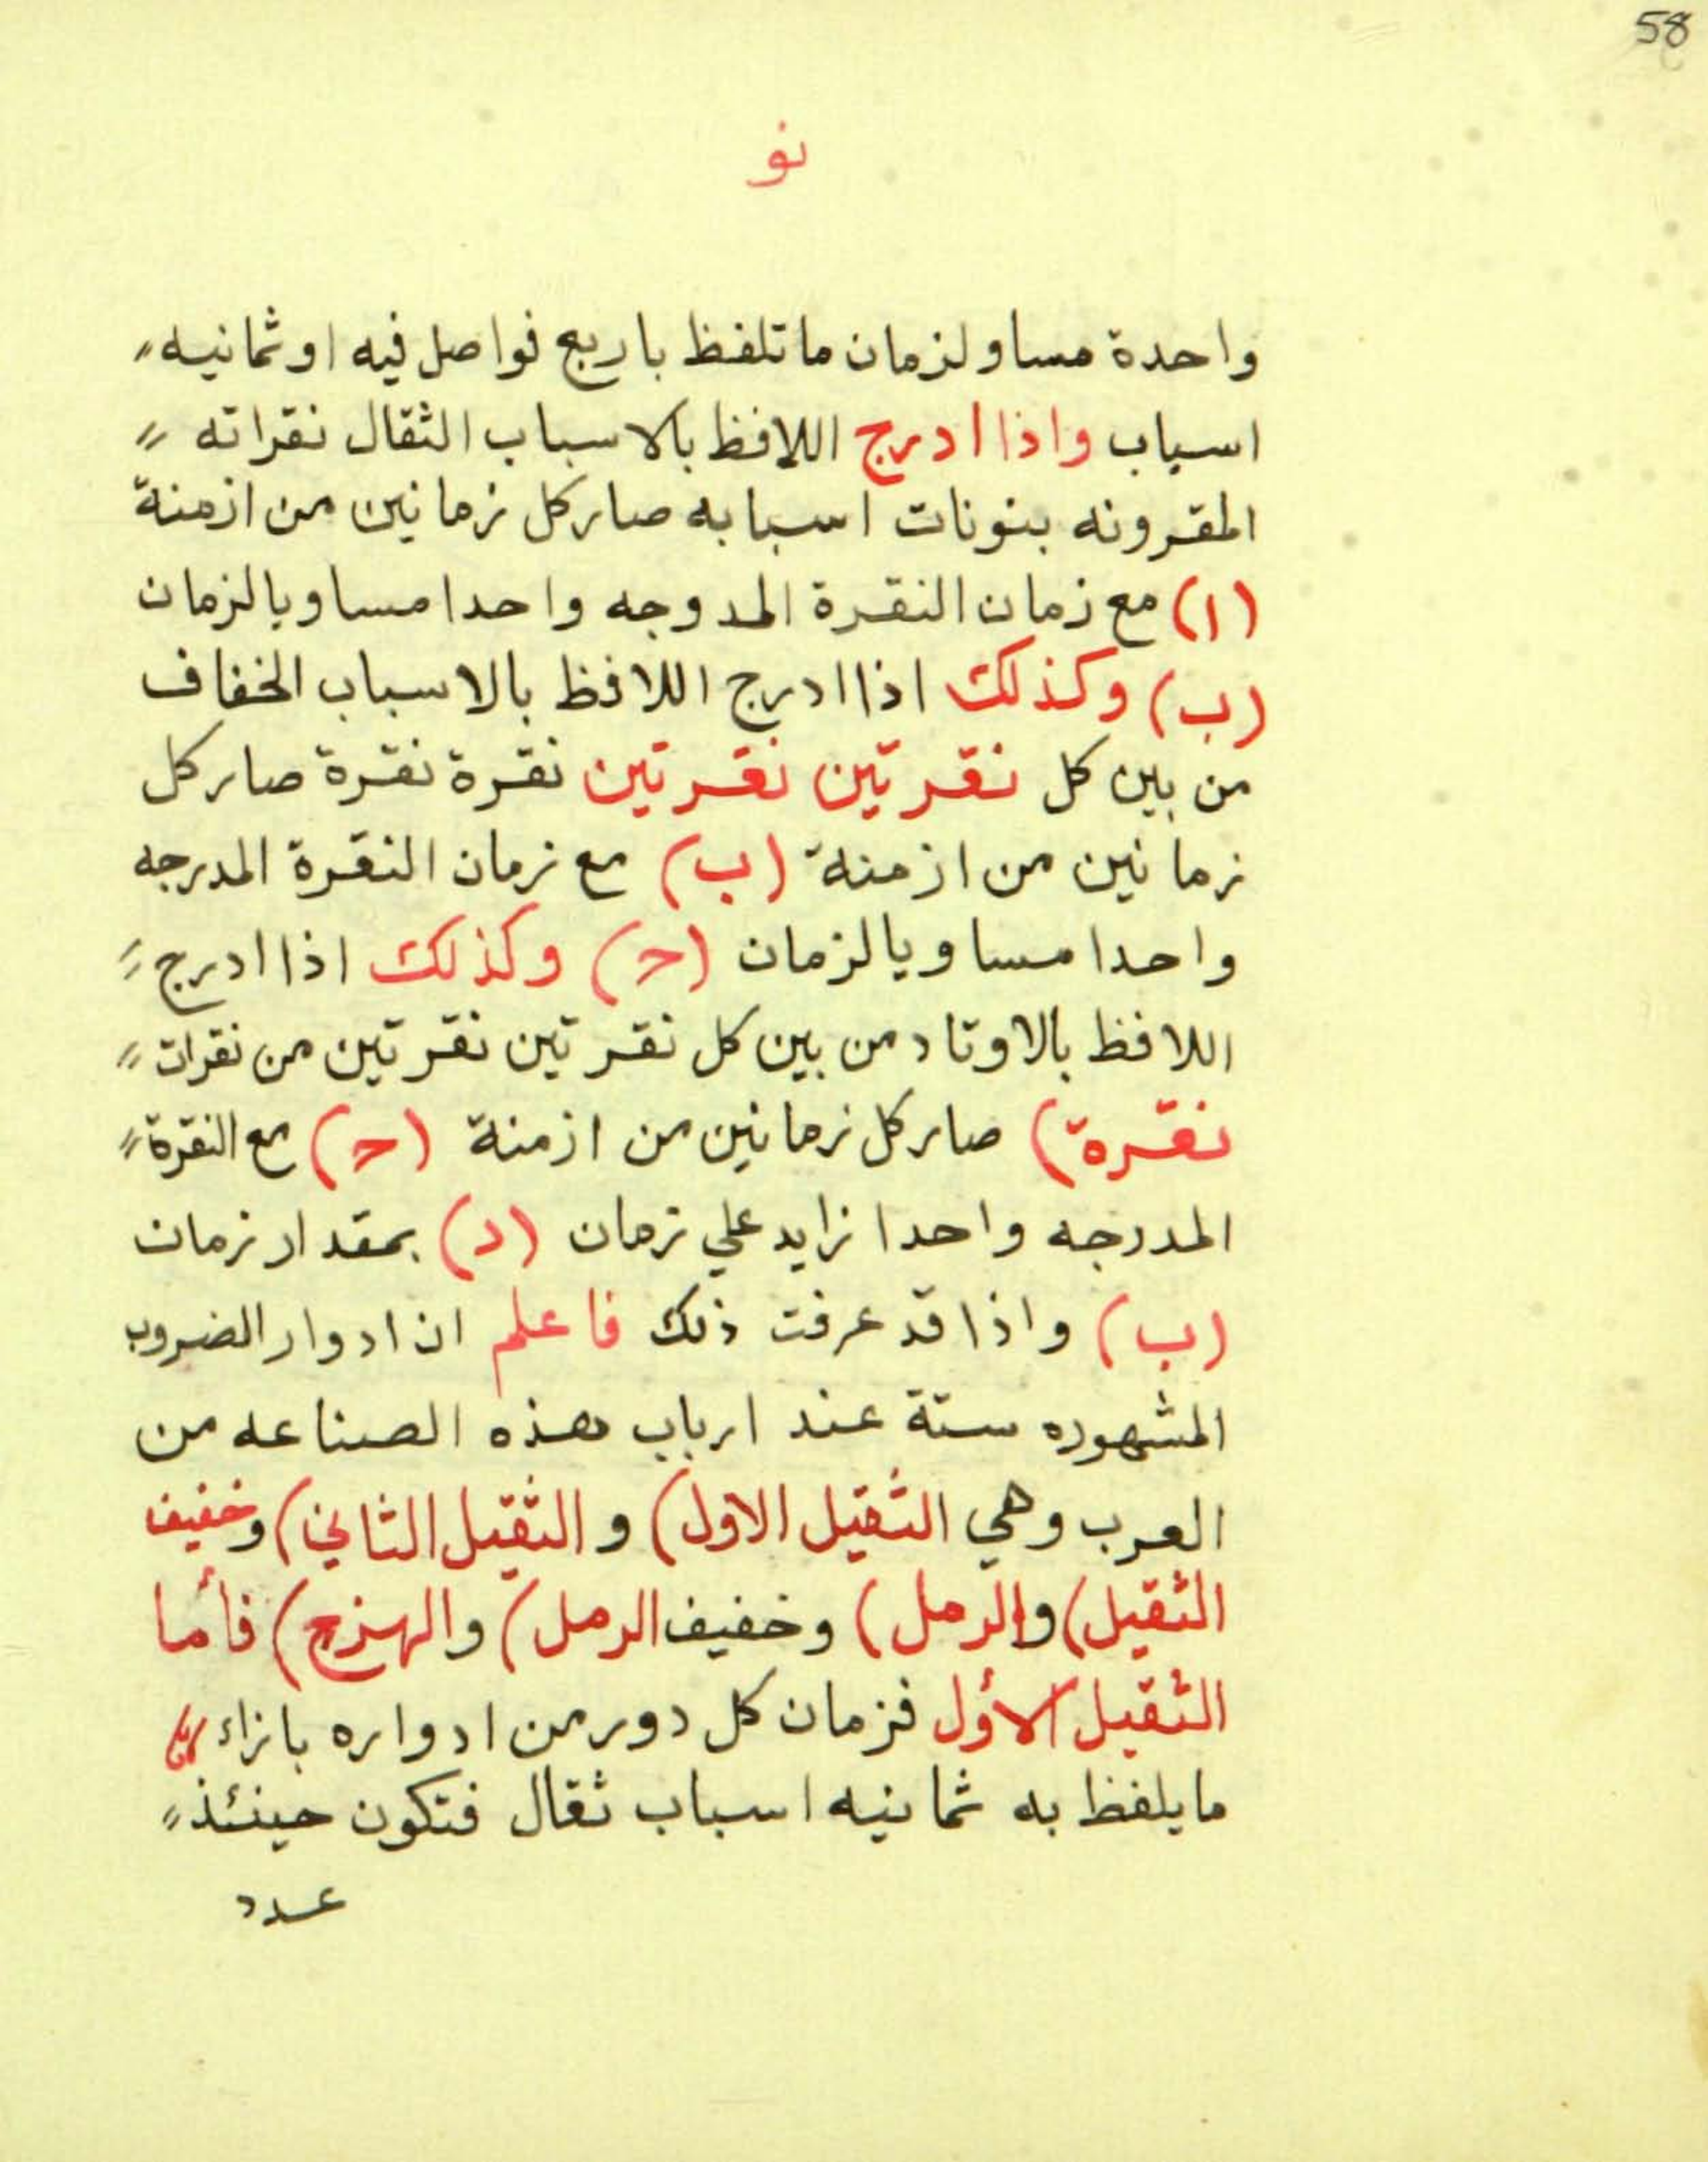 58
نو
واحدة مساو لزمان ما تلفظ باربع فواصل فيه او ثمانيه
اسباب واذا ادرج اللافظ بالاسباب الثقال نقراته
المقرونه بنونات اسبابه صار كل زمانين من ازمنة
(ا) مع زمان النقرة المدوجه واحدا مساويا لزمان
(ب) وكذلك اذا ادرج اللافظ بالاسباب الخفاف
من بين كل نقرتين نقرتين نقرة نقرة صار كل
زمانين من ازمنة (ب) مع زمان النقرة المدرجه
واحدا مساويا لزمان (ح) وكذلك اذا ادرج
اللافظ بالاوتاد من بين كل نقرتين نقرتين من نقرات
نقرة) صار كل زمانين من ازمنة (ح) مع النقرة
المدرجه واحدا زايد علي زمان (د) بمقدار زمان
(ب) واذا قد عرفت ذلك فاعلم ان ادوار الضروب
المشهوره ستة عند ارباب هذه الصناعه من
العرب وهي الثقيل الاول) والثقيل الثاني) وخفيف
الثقيل) والرمل) وخفيف الرمل) والهزج) فأما
الثقيل الأول فزمان كل دور من ادواره بازاء
ما يلفظ به ثمانيه اسباب ثقال فتكون حينئذ
عدد